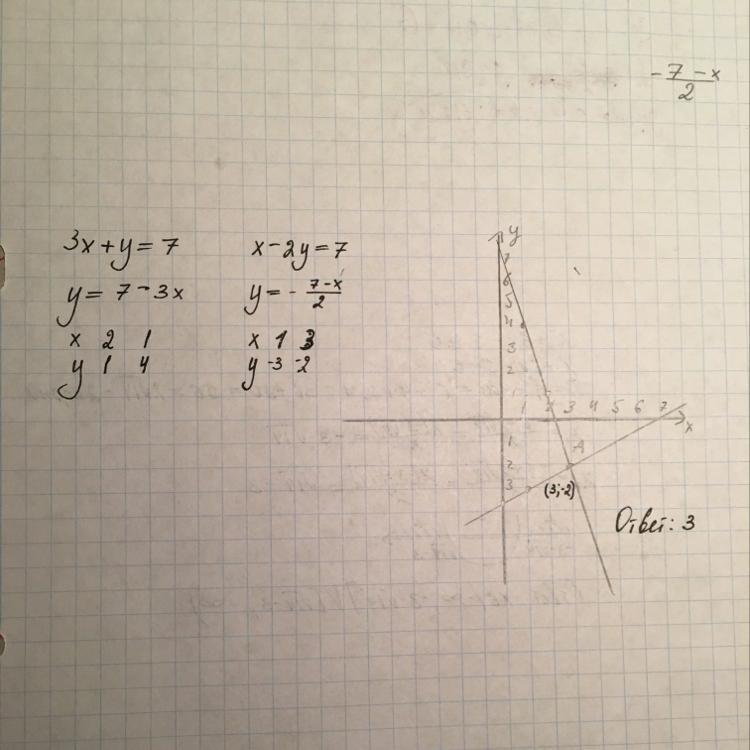 -7-x/2
3x+y=7
y=7-3x
x 2 1
y 1 4
x-2y=7
y=-7-x/2
x 1 3
y -3 -2
y
7
6
5
4
3
2
1
1 2 3 4 5 6 7
x
1
2
3
A
(3;-2)
Ответ: 3